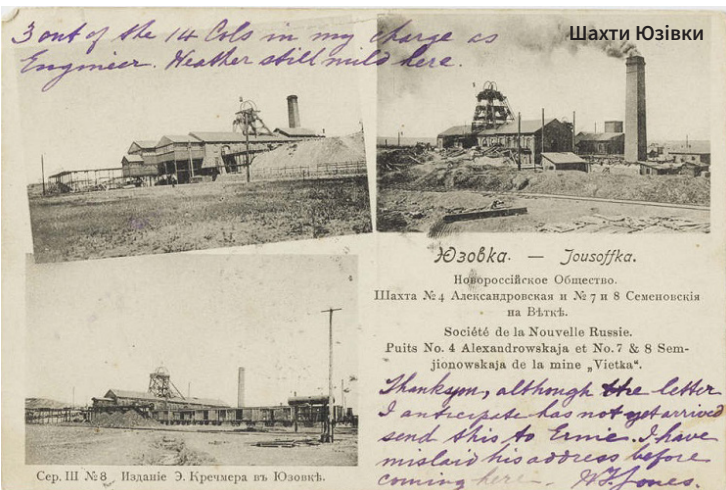 3 out of the 14 Cols in my charge as
Engineer. Weather still mild here.
Шахти Юзівки
Юзовка. — Jousoffka.
Новороссійское Общество.
Шахта №4 Александровская и №7 и 8 Семеновскія
на Вѣткѣ.
Société de la Nouvelle Russie.
Puits No. 4 Alexandrowskaja et No. 7 & 8 Sem-
jionowskaja de la mine „Vietka“.
although the letter
I anticipate has not yet arrived
send this to Ernie. I have
mislaid his address before
coming here. Jones.
Сер. III №8 Изданіе Э. Кречмера въ Юзовкѣ.